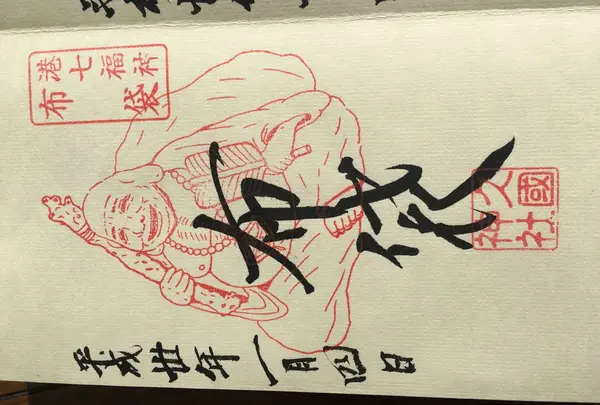 港七福神
布袋
布袋
久國
神社
平成廿年一月四日